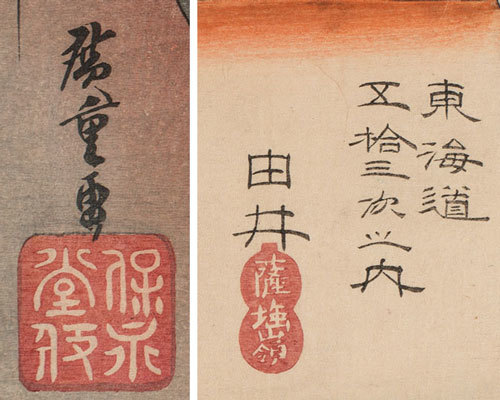 廣重画
保永
堂版
東海道
五拾三次之内
由井
薩埵嶺